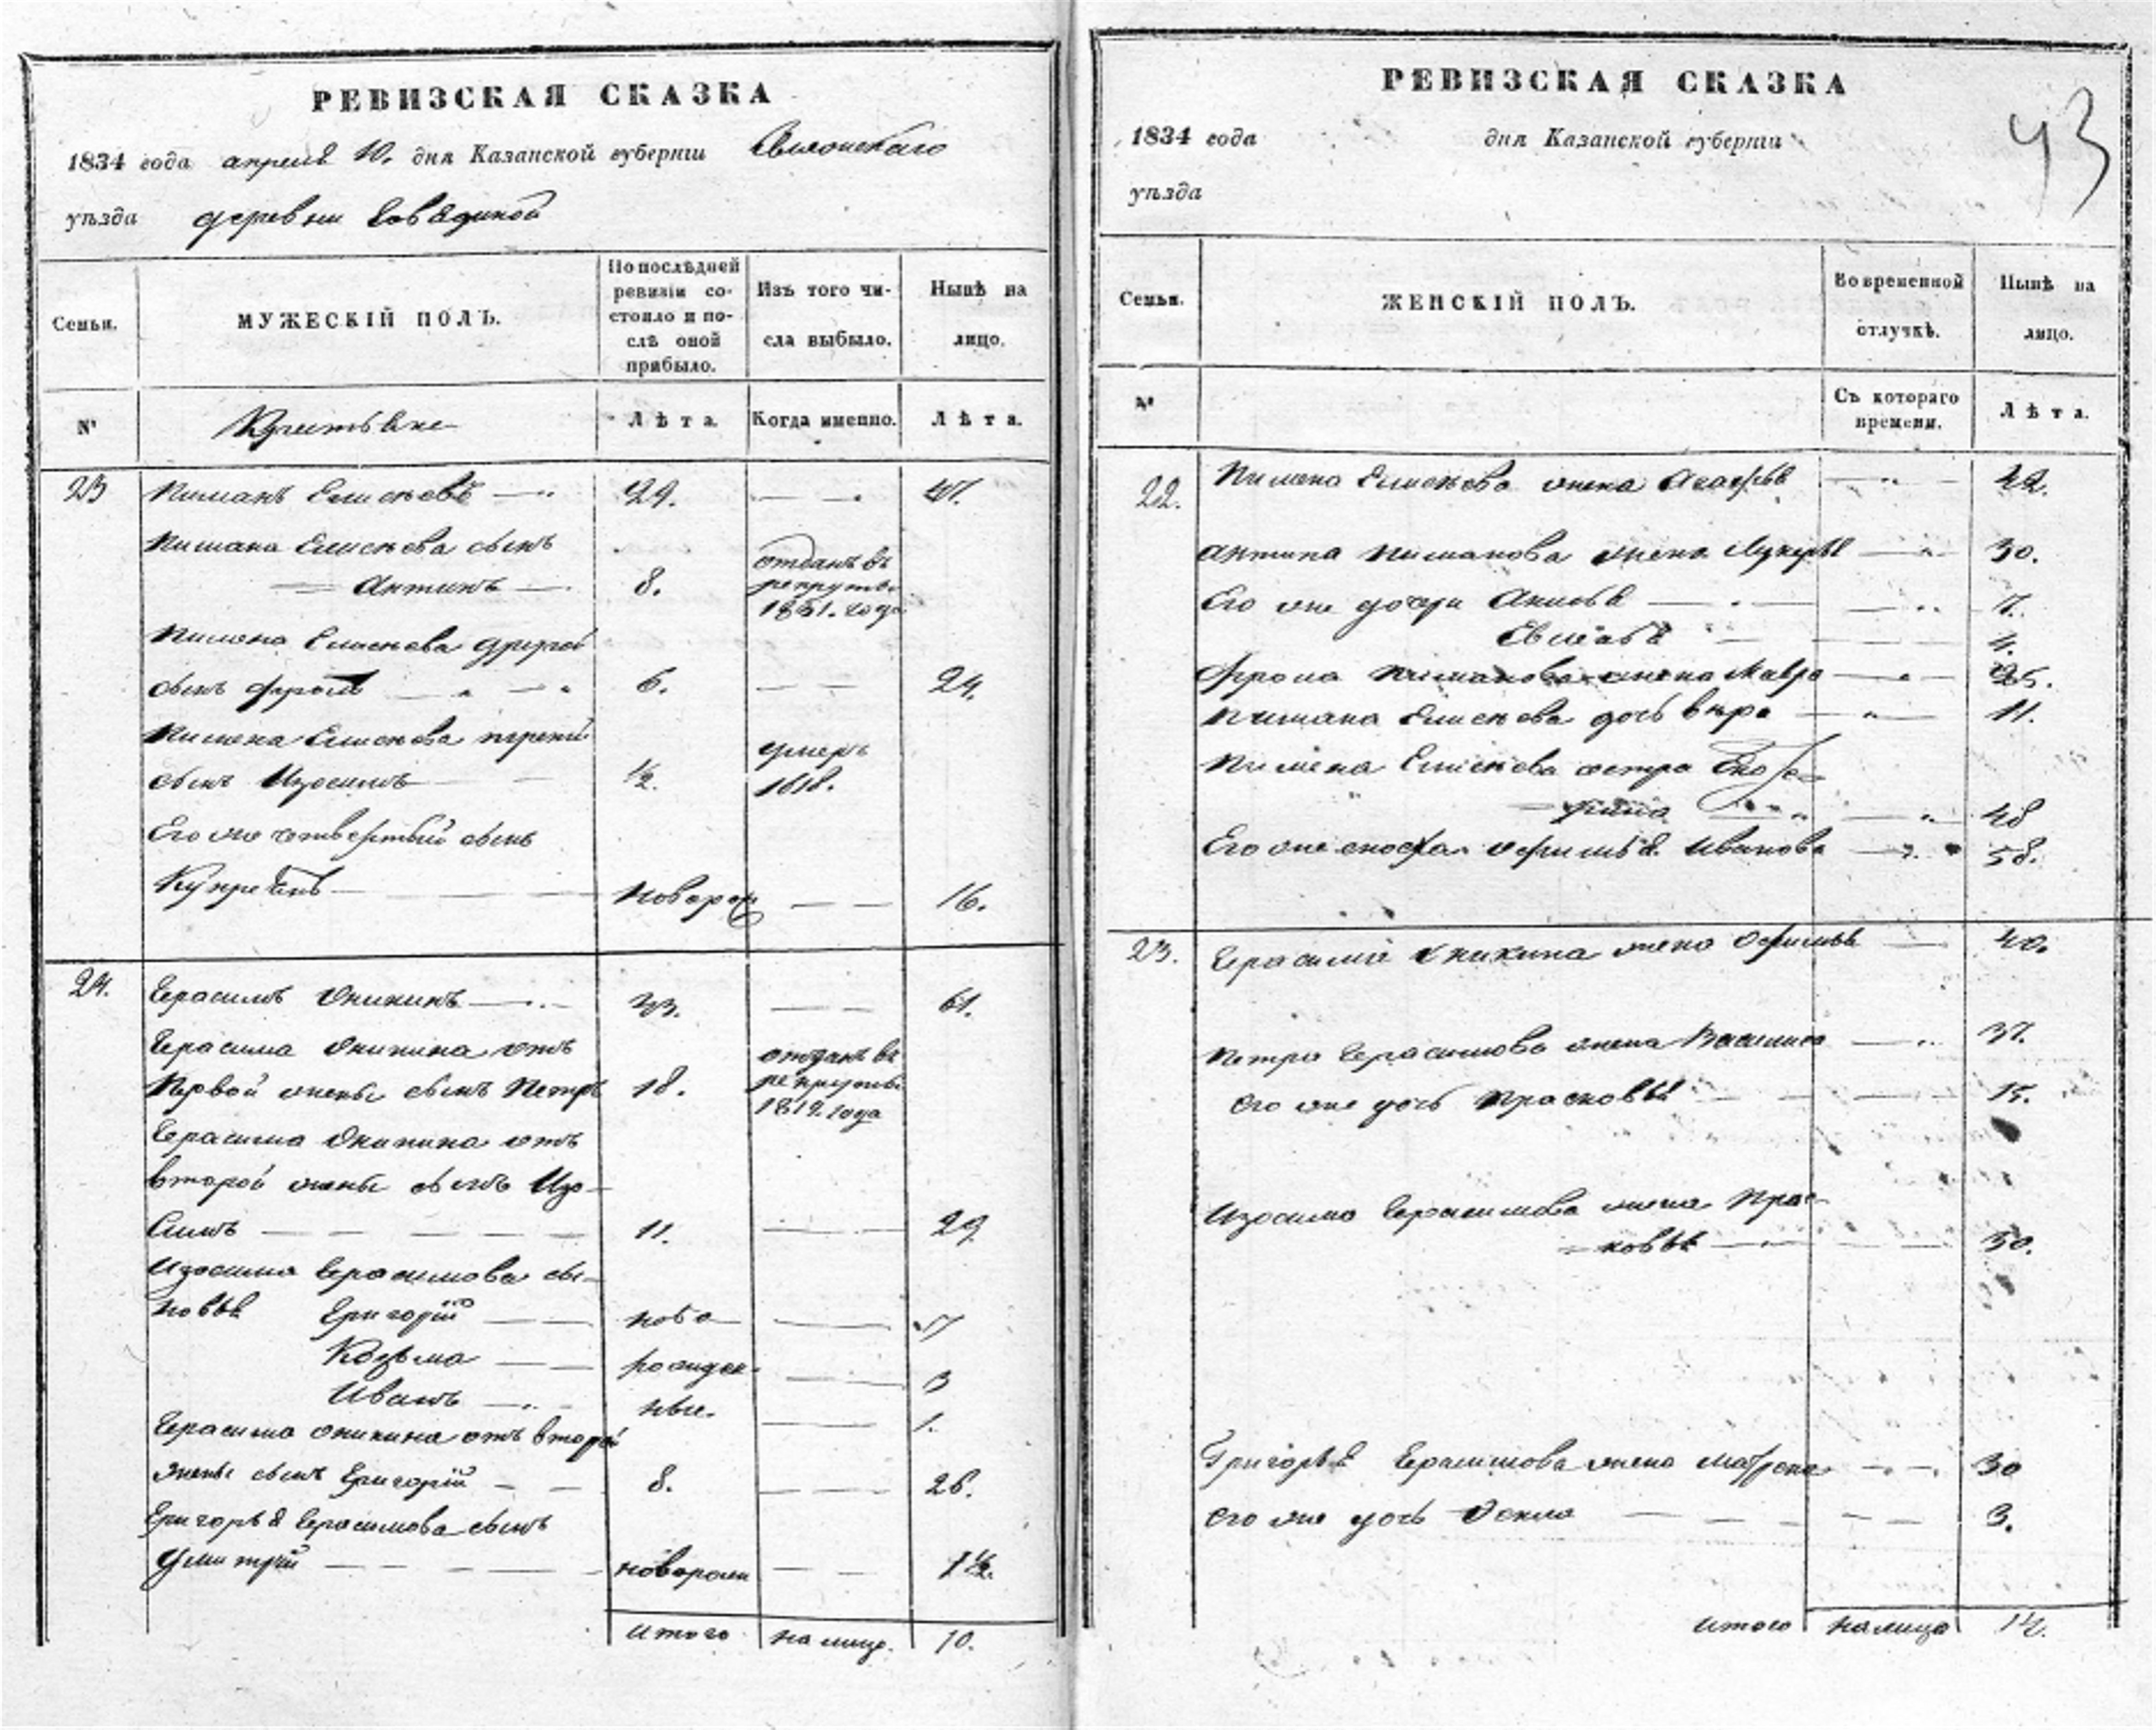 РЕВИЗСКАЯ СКАЗКА
1834 года апреля 10. дня Казанской губернiи
уѣзда деревни
Семьи.
МУЖЕСКIЙ ПОЛЪ.
По послѣдней
ревизiи со-
стояло и по-
слѣ оной
прибыло.
Изъ того чи-
сла выбыло.
Нынѣ на
лицо.
№
Лѣта.
Когда именно.
Лѣта.
23 Пиманъ Елисѣевъ 29. 47.
Пимана Елисѣева сынъ
Антипъ 8. отданъ въ рекруты 1831. года
Пимена Елисѣева другой
сынъ Фролъ 6. 24.
Пимена Елисѣева третiй
сынъ Изосимъ 1/2. умеръ 1818.
Его же четвертый сынъ
Купреянъ новорож 16.
24. Герасимъ Оникинъ 43. 61.
Герасима Оникина отъ
первой жены сынъ Петръ 18. отданъ въ рекруты 1819. года
Герасима Оникина отъ
второй жены сынъ Изо-
симъ 11. 29.
Изосима Герасимова сы-
новья Григорiй ново-
Козьма рожден- 3
Иванъ ные. 1.
Герасима Оникина отъ второй
жены сынъ Григорiй 8. 26.
Григорья Герасимова сынъ
Дмитрiй новорож 1 1/2.
итого на лицо. 10.
РЕВИЗСКАЯ СКАЗКА
43
1834 года дня Казанской губернiи
уѣзда
Семьи.
ЖЕНСКIЙ ПОЛЪ.
Во временной
отлучкѣ.
Нынѣ на
лицо.
№
Съ котораго
времени.
Лѣта.
22. Пимена Елисѣева жена Агафья 42.
Антипа Пиманова жена Лукерья 30.
Его же дочери Акилина 7.
4.
Фрола Пиманова жена Мавра 25.
Пимана Елисѣева дочь Вѣра 11.
Пимена Елисѣева сестра Екате-
рина 48
Его же сноха Офимья Иванова 58.
23. Герасима Оникина жена Офимья 40.
Петра Герасимова жена Василиса 37.
Его же дочь Прасковья 15.
Изосима Герасимова жена Прас-
ковья 30.
Григорья Герасимова жена Матрена 30
Его же дочь Фекла 3.
итого на лицо 14.